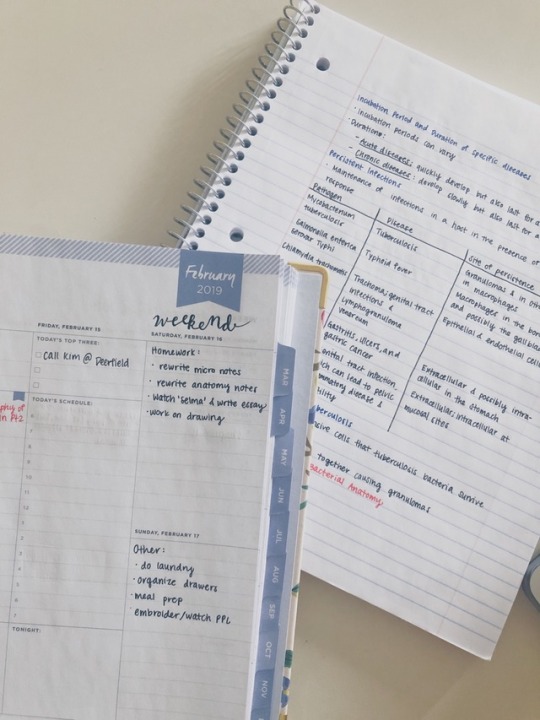 February
2019
weekend
FRIDAY, FEBRUARY 15
TODAY'S TOP THREE:
call Kim @ Deerfield
TODAY'S SCHEDULE:
TONIGHT:
SATURDAY, FEBRUARY 16
Homework:
· rewrite micro notes
· rewrite anatomy notes
· watch "Selma" & write essay
· work on drawing
SUNDAY, FEBRUARY 17
Other:
· do laundry
· organize drawers
· meal prep
· embroider/watch PPL
MAR
APR
MAY
JUN
JUL
AUG
SEP
OCT
NOV
Incubation Period and Duration of Specific Diseases
· incubation periods can vary
· Durations:
- Acute diseases: quickly develop but also last for a
- Chronic diseases: develop slowly but also last for a
Persistent Infections
· Maintenance of infections in a host in the presence of
response
Pathogen
Disease
Site of persistence
Mycobacterium
tuberculosis
Tuberculosis
Granulomas & in
in macrophages
Salmonella enterica
serovar Typhi
Typhoid fever
Macrophages in the
and possibly the
Chlamydia trachomatis
Trachoma; genital tract
infections &
lymphogranuloma
venereum
Epithelial & endothelial
Gastritis, ulcers, and
gastric cancer
Extracellular & possibly intra-
cellular in the stomach
tract infection,
can lead to pelvic
disease &
Extracellular; intracellular at
mucosal sites
cells that tuberculosis bacteria survive
together causing granulomas
Bacterial Anatomy